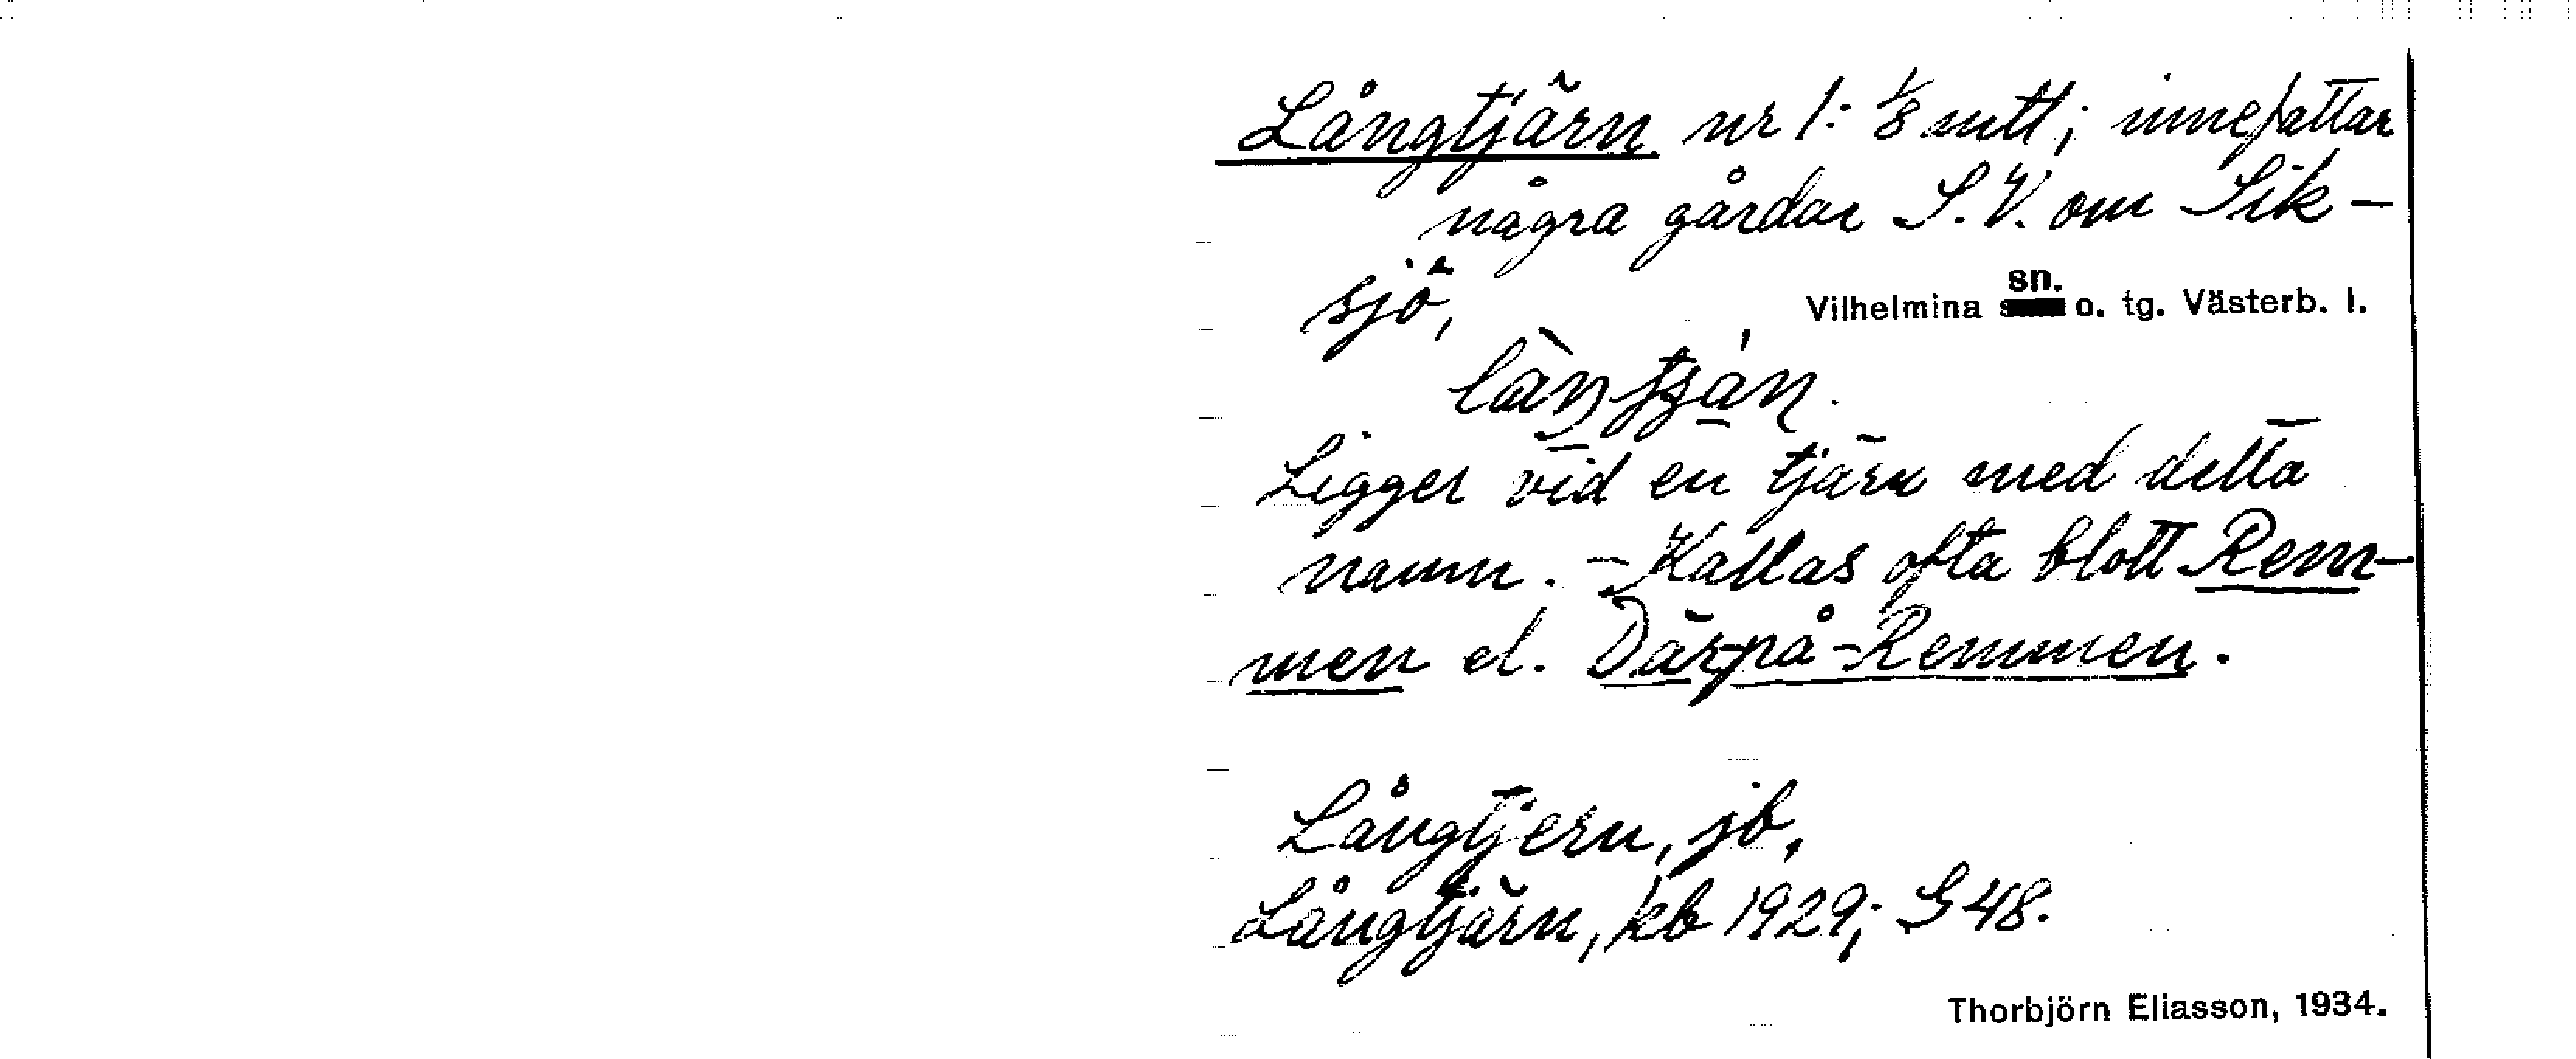 Långtjärn nr 1: 1/8 mtl; innefattar
några gårdar S.V. om Sik-
sjö,
Vilhelmina sn. o. tg. Västerb. l.
Ligger vid en tjärn med detta
namn. - Kallas ofta blott Rem-
men el. Därpå-Remmen.
Långtjern, jb,
Långtjärn, kb 1929; G 48.
Thorbjörn Eliasson, 1934.